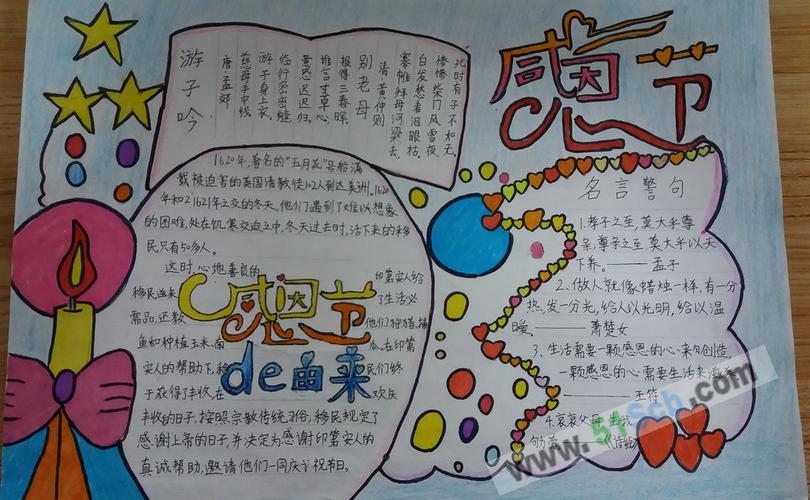 感恩节
游子吟
唐·孟郊
慈母手中线
游子身上衣
临行密密缝
意恐迟迟归。
谁言寸草心
报得三春晖
别老母
清·黄仲则
搴帷拜母河梁去,
白发愁看泪眼枯
惨惨柴门风雪夜,
此时有子不如无。
1620年,著名的"五月花"号船满
载被迫害的英国清教徒102人到达美洲。1620
年和1621年之交的冬天,他们遇到了难以想象
的困难,处在饥寒交迫之中,冬天过去时,活下来的移
民只有50多人。
这时,心地善良的 印第安人给
移民送来 了生活必
需品,还教 他们狩猎、捕
鱼和种植玉米、南 瓜。在印第
安人的帮助下,移 民们终
于获得了丰收,在 欢庆
丰收的日子,按照宗教传统习俗,移民规定了
感谢上帝的日子,并决定为感谢印第安人的
真诚帮助,邀请他们一同庆祝节日。
感恩节
de由来
名言警句
1.孝子之至,莫大乎尊
亲;尊亲之至,莫大乎以天
下养。——孟子
2、做人就像蜡烛一样,有一分
热,发一分光,给人以光明,给以温
暖。——萧楚女
3、生活需要一颗感恩的心来创造,
一颗感恩的心需要生活来滋养
——王符
4.哀哀父母,生我
劬劳
www.5ysch.com